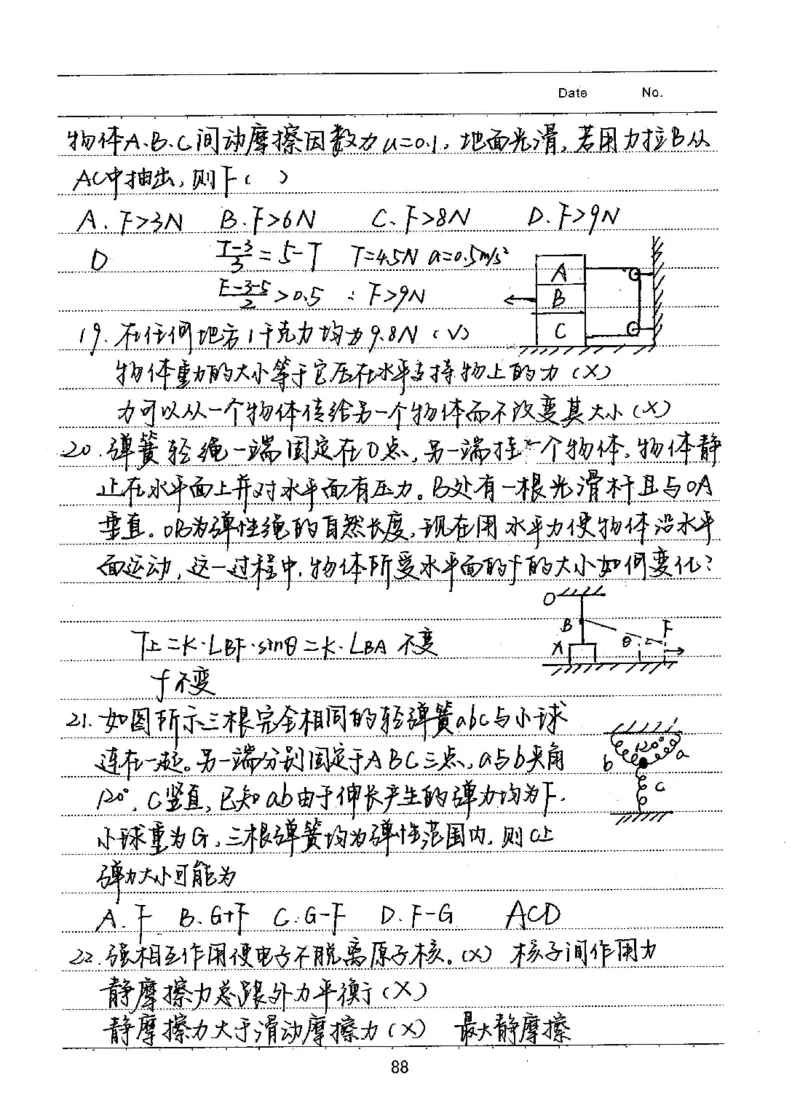 Date No.
物体A.B.C间动摩擦因数为u=0.1,地面光滑,若用力拉B从
AC中抽出,则F( )
A. F>3N B. F>6N C. F>8N D. F>9N
D (T-3)/3 = 5-T T=4.5N a=0.5m/s²
(F-3-5)/2 > 0.5 ∴ F>9N
A
B
C
19. 在任何地方1千克力均为9.8N (√)
物体重力的大小等于它压在水平支持物上的力(×)
力可以从一个物体传给另一个物体而不改变其大小(×)
20. 弹簧轻绳一端固定在O点,另一端挂一个物体。物体静
止在水平面上并对水平面有压力。B处有一根光滑杆且与OA
垂直。OB为弹性绳的自然长度,现在用水平力使物体沿水平
面运动,这一过程中,物体所受水平面的f的大小如何变化?
O
B F
A θ
T上=K·LBF·sinθ=K·LBA 不变
f不变
21. 如图所示三根完全相同的轻弹簧abc与小球
连在一起。另一端分别固定于ABC三点,a与b夹角
120°,C竖直,已知ab由于伸长产生的弹力均为F.
小球重为G,三根弹簧均为弹性范围内,则C上
弹力大小可能为
b 120° a
c
A. F B. G+F C. G-F D. F-G ACD
22. 强相互作用使电子不脱离原子核。(×) 核子间作用力
静摩擦力总跟外力平衡(×)
静摩擦力大于滑动摩擦力(×) 最大静摩擦
88